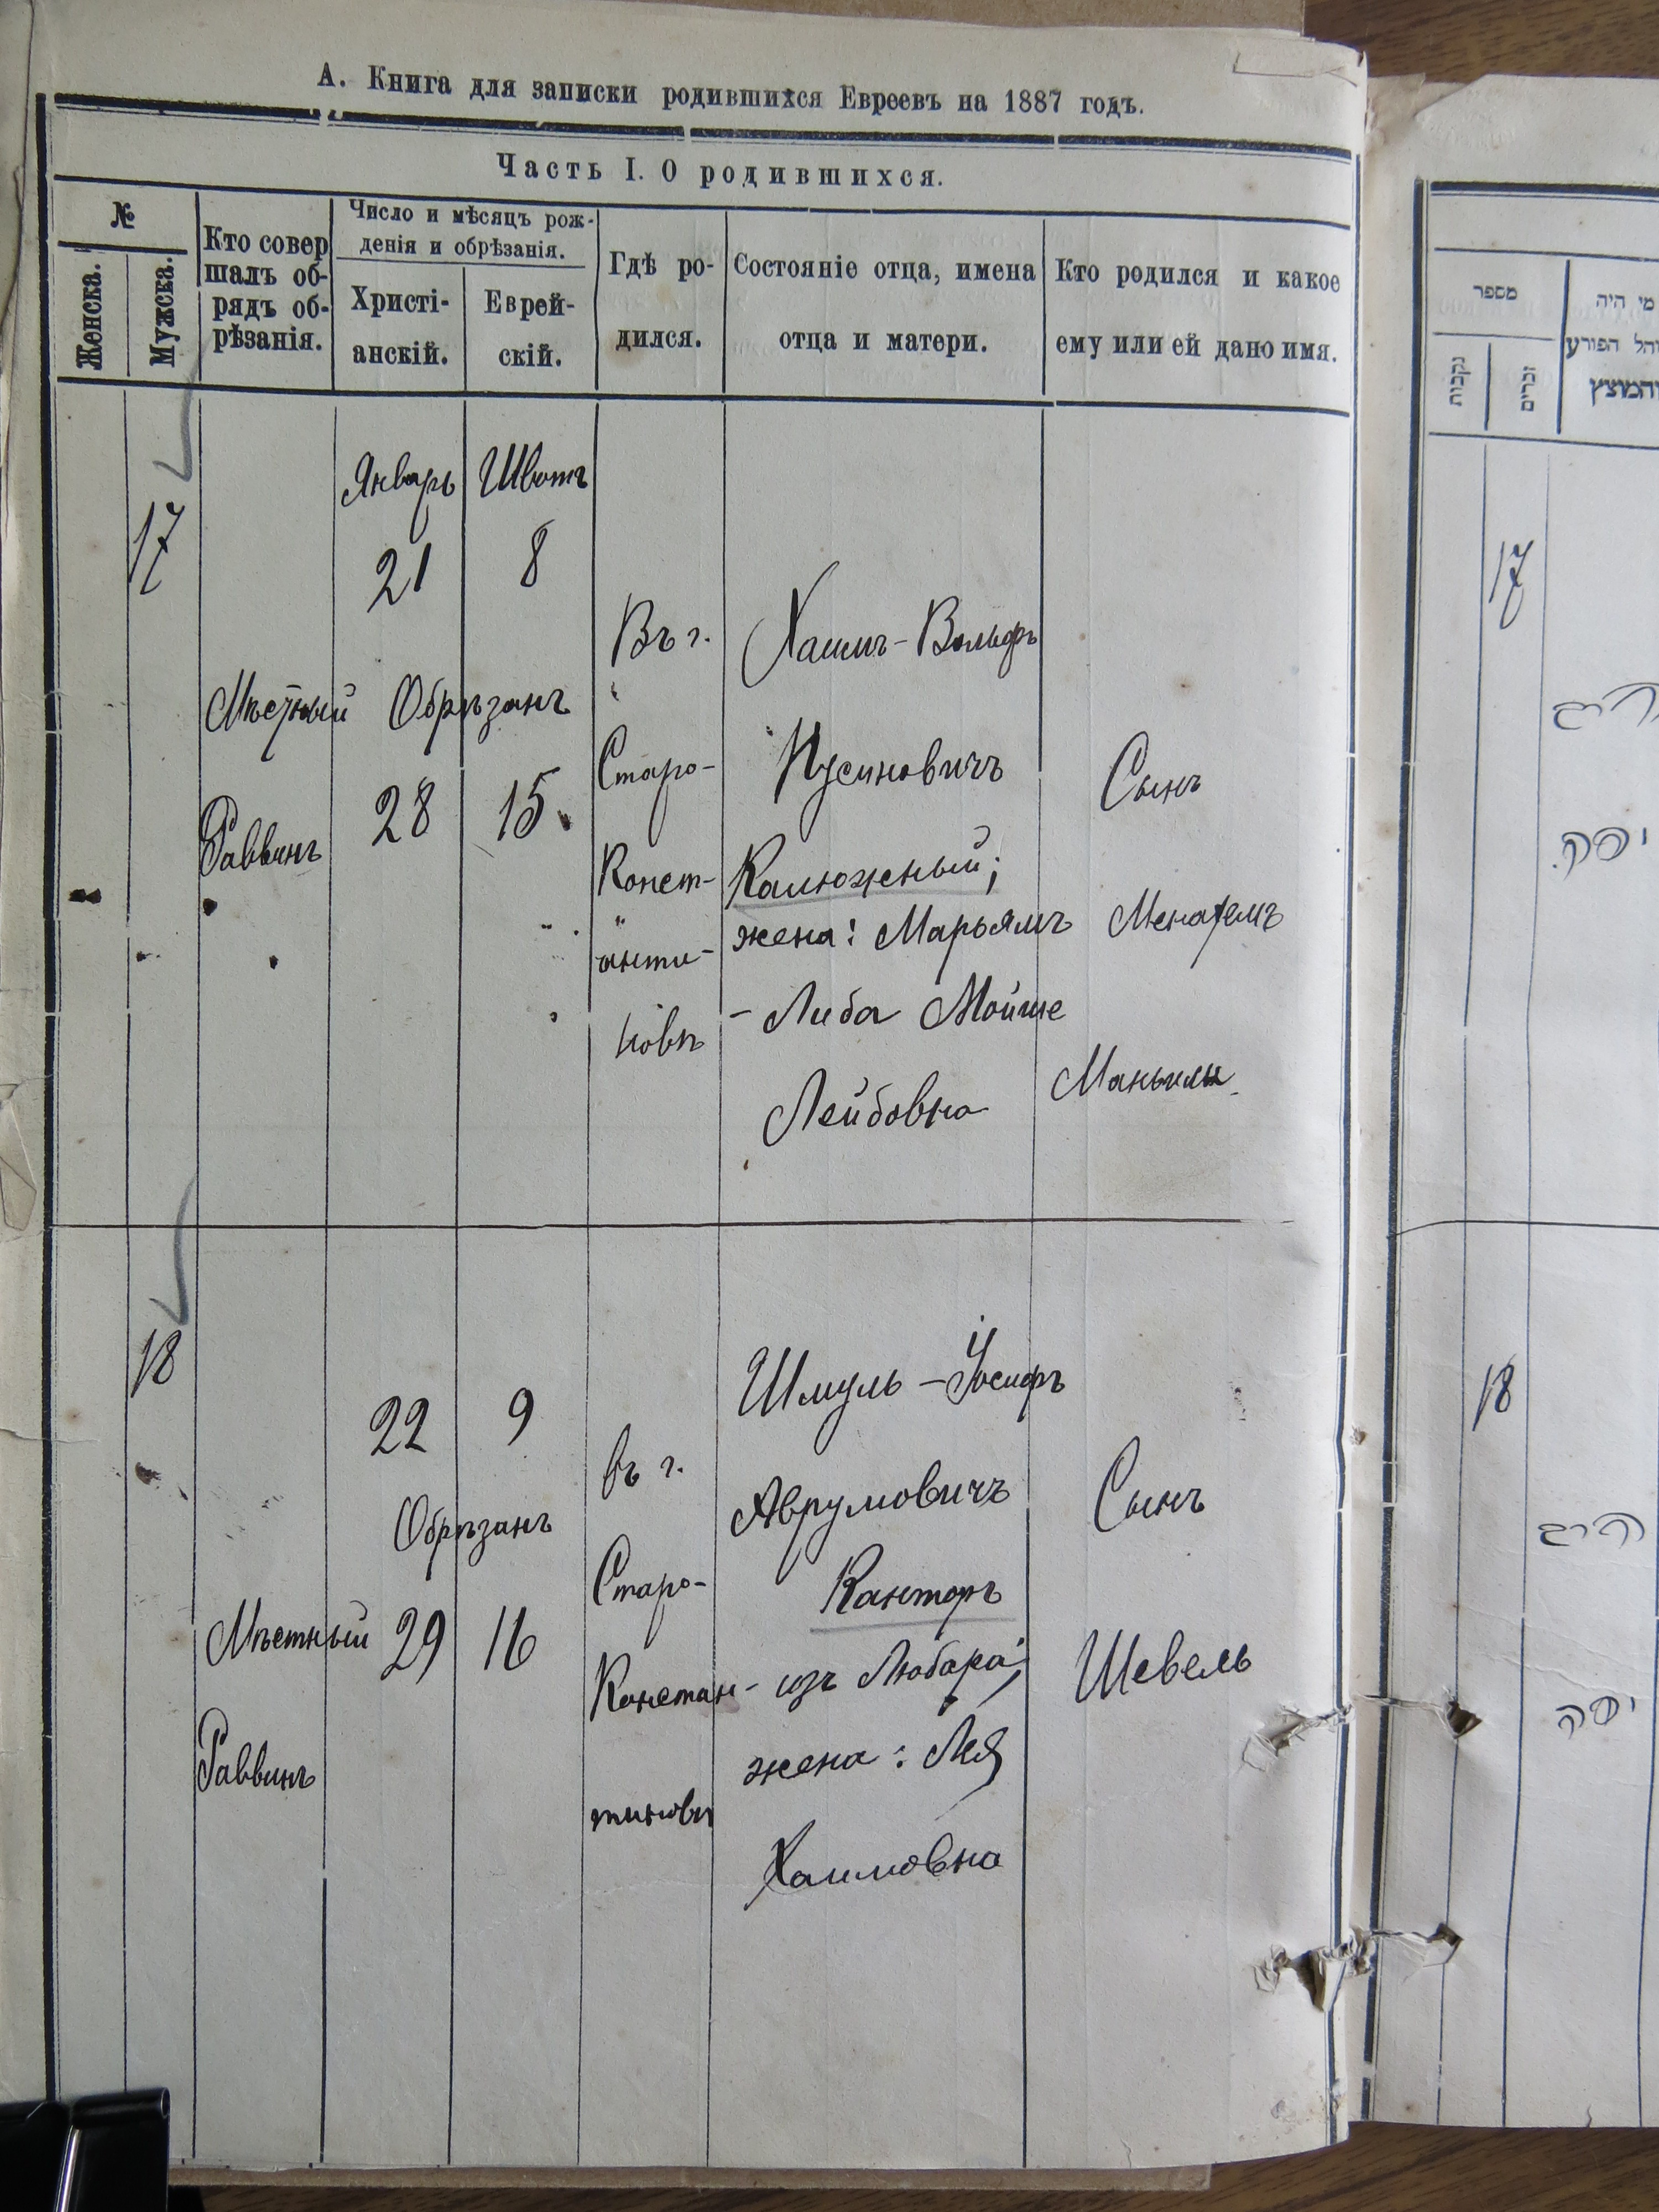 А. Книга для записки родившихся Евреевъ на 1887 годъ.
Часть I. О родившихся.
№
Женска.
Мужска.
Кто совер
шалъ об-
рядъ об-
рѣзанія.
Число и мѣсяцъ рож-
денія и обрѣзанія.
Христі-
анскій.
Еврей-
скій.
Гдѣ ро-
дился.
Состояніе отца, имена
отца и матери.
Кто родился и какое
ему или ей дано имя.
17
Мѣстный
Раввинъ
Январь
21
Шватъ
8
Обрѣзанъ
28
15
Въ г.
Старо-
Конст-
анти-
новѣ
Хаимъ-Вольфъ
Нусиновичъ
Калюжный;
жена: Марьямъ
- Либа Мойше
Лейбовна
Сынъ
Менахемъ
18
Мѣстный
Раввинъ
22
9
Обрѣзанъ
29
16
въ г.
Старо-
Констан-
тиновѣ
Шмуль-Іосифъ
Аврумовичъ
Канторъ
изъ Любара;
жена: Лея
Хаимовна
Сынъ
Шевель
מספר
נקבות
זכרים
מי היה
הפורע
והמוצץ
17
18